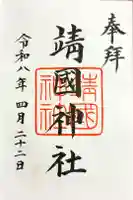 奉拝
靖國神社
靖國神社
令和八年四月二十二日